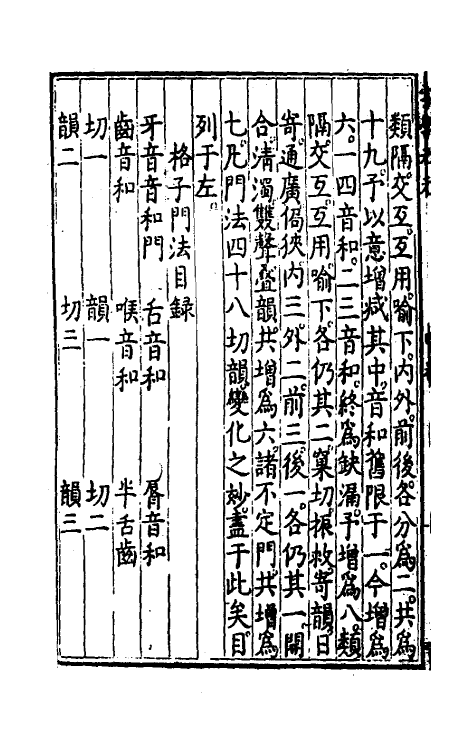 類隔交互互用喻下内外前後各分為二共為
十九予以意增减其中音和舊限于一今增為
六一四音和二三音和終為缺漏予增為八類
隔交互互用喻下各仍其二窠切振救寄韻日
寄通廣侷狹内三外二前三後一各仍其一開
合清濁雙聲疊韻共增為六諸不定門共增為
七凡門法四十八切韻變化之妙盡于此矣目
列于左
格子門法目録
牙音音和門 舌音音和 脣音音和
齒音音和 喉音音和 半舌齒
切一 韻一 切二
韻二 切三 韻三